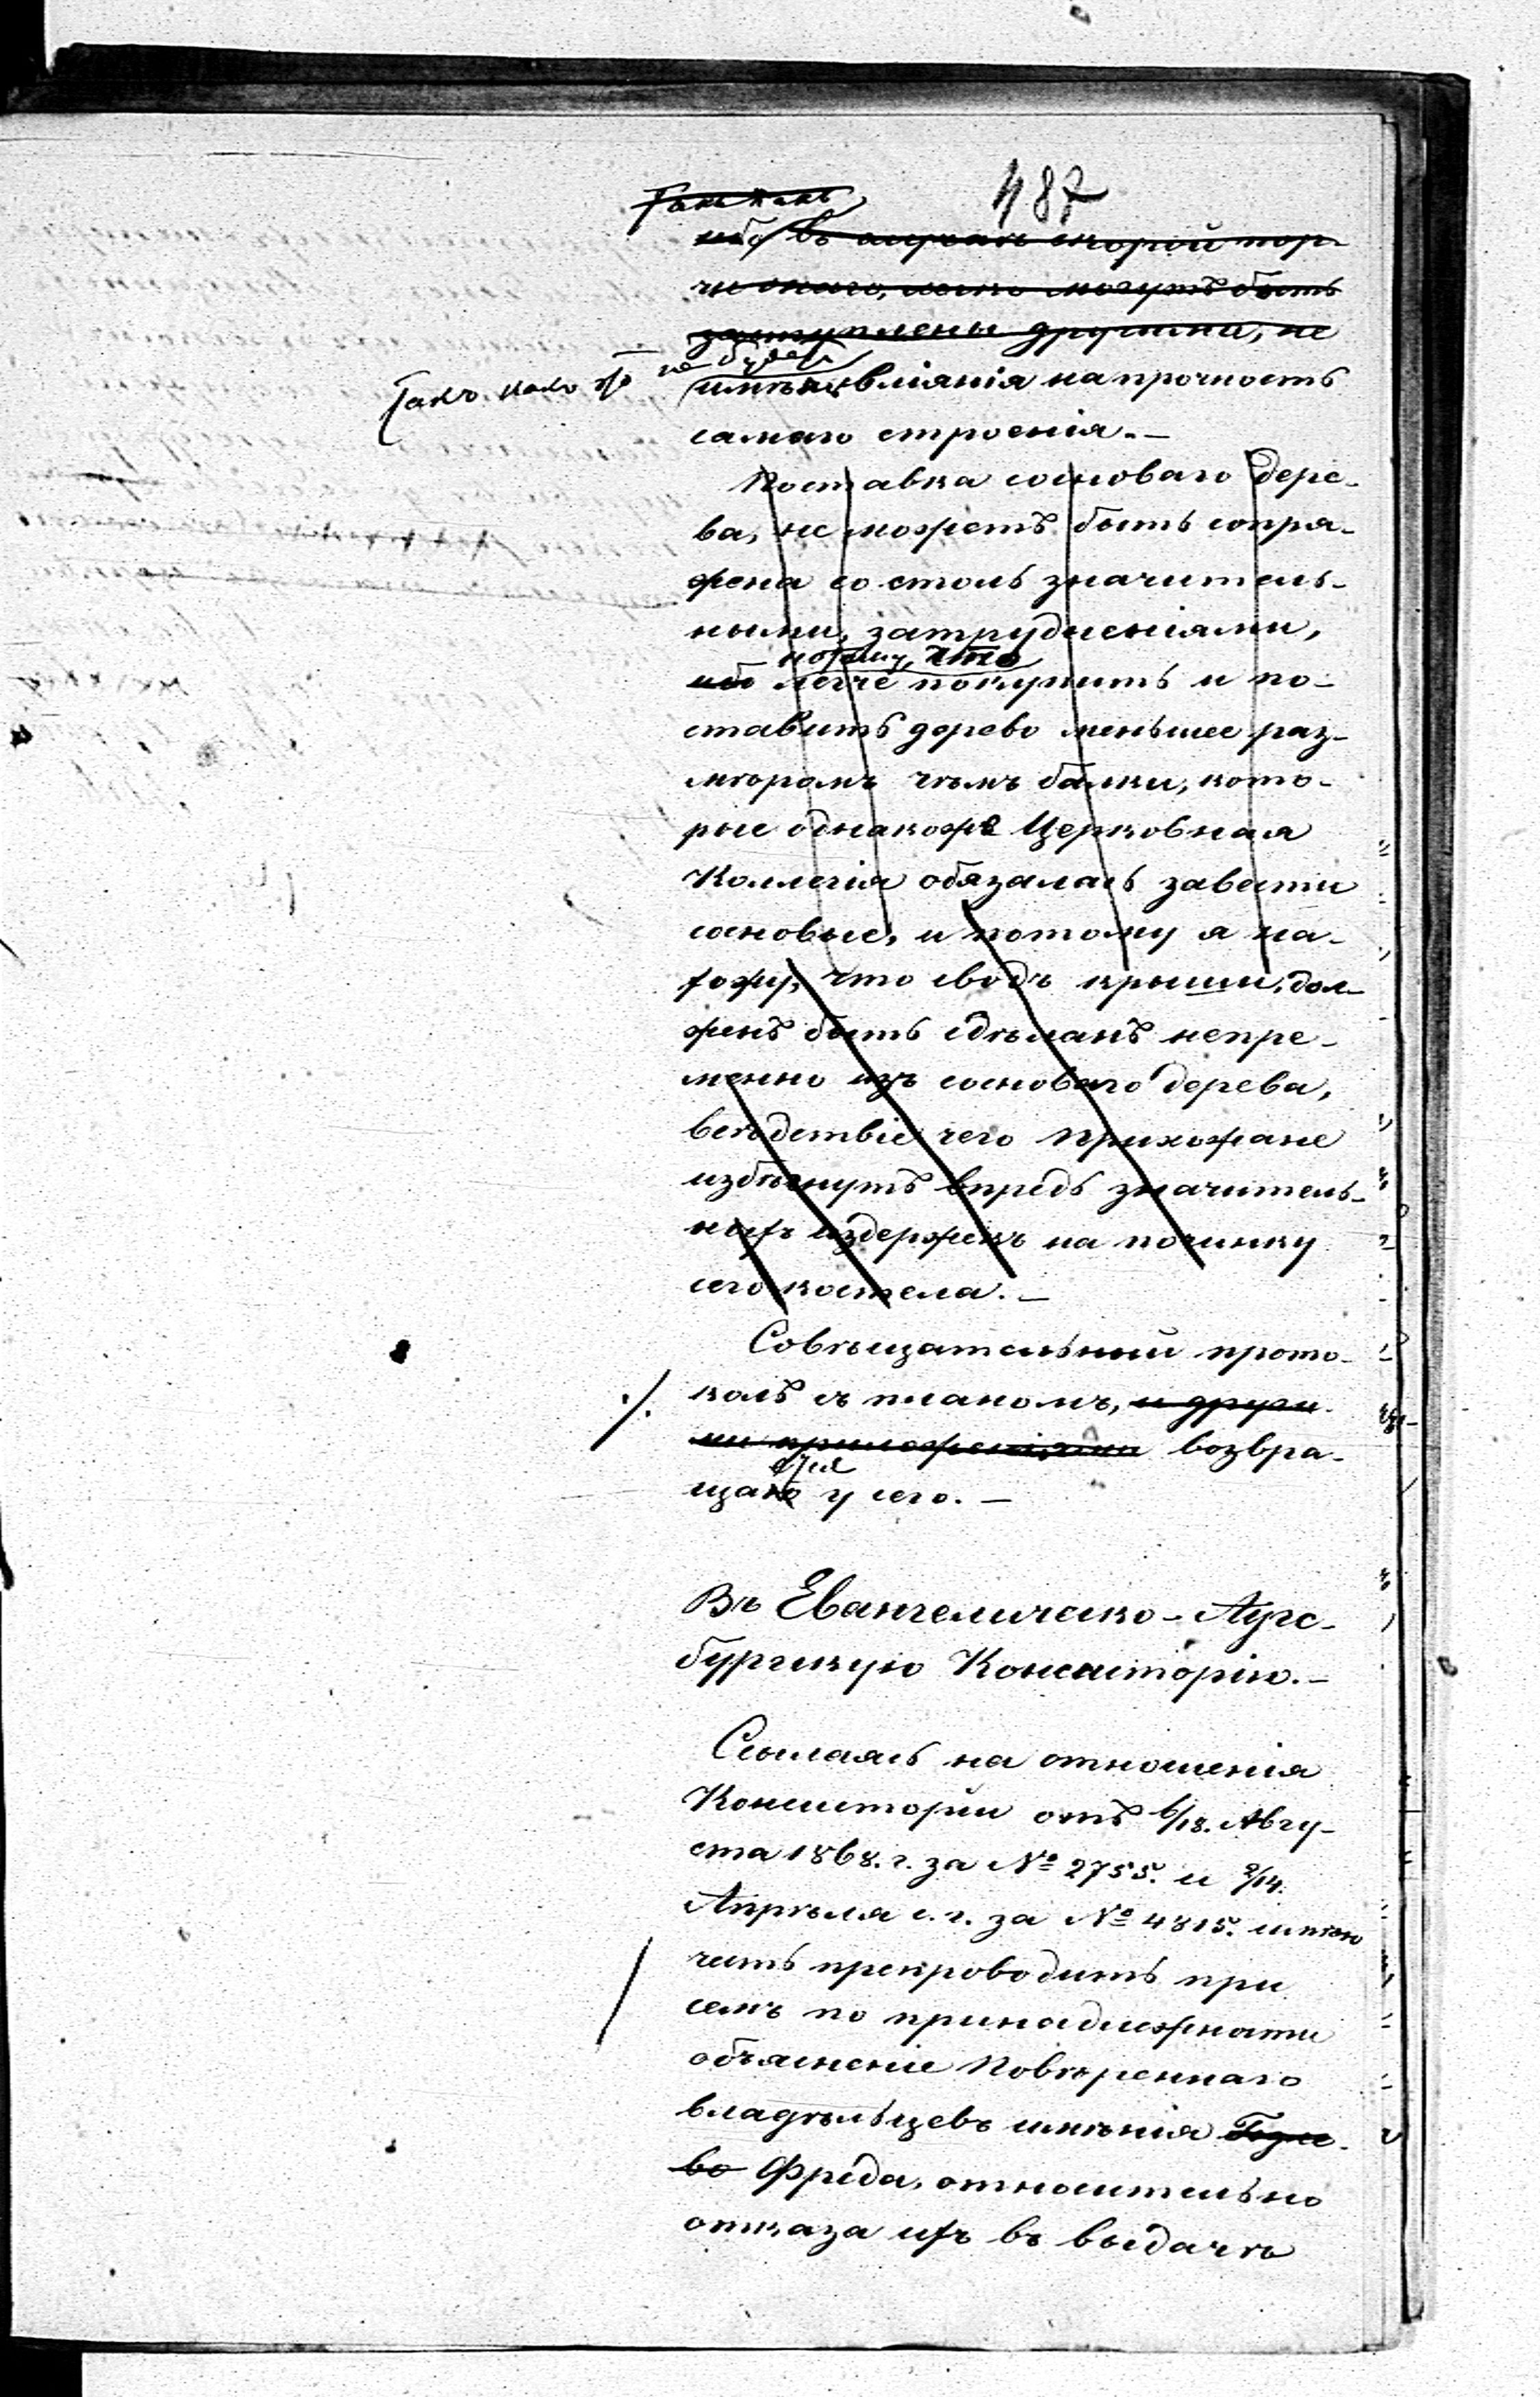 487
такъ какъ
ибо въ случаѣ скорой пор-
чи онаго, легко могутъ быть
заступлены другими, не
Такъ какъ это не будетъ
имѣть вліянія на прочность
самаго строенія.—
Поставка сосноваго дере-
ва, не можетъ быть сопря-
жена со столь значитель-
ными, затрудненіями,
потому, что
ибо легче покупить и по-
ставить дерево меньшее раз-
мѣромъ чѣмъ балки, кото-
рые однакоже Церковная
Коллегія обязалась завести
сосновые, и потому я на-
хожу, что сводъ крыши, дол-
женъ быть сдѣланъ непре-
менно изъ сосноваго дерева,
вслѣдствіе чего прихожане
избѣгнутъ впредь значитель-
ныхъ издержекъ на починку
сего костела.—
Совѣщательный прото-
./. колъ съ планомъ, и други-
ми приложеніями возвра-
ется
щаю у сего.—
Въ Евангелическо-Аугс-
бургскую Консисторію.—
Ссылаясь на отношенія
Консисторіи отъ 6/18. Авгу-
ста 1868. г. за № 2755. и 2/14.
Апрѣля с. г. за № 4815. имѣю
честь препроводить при
семъ по принадлежности
объясненіе Повѣреннаго
владѣльцевъ имѣнія
во Фреда, относительно
отказа ихъ въ выдачѣ